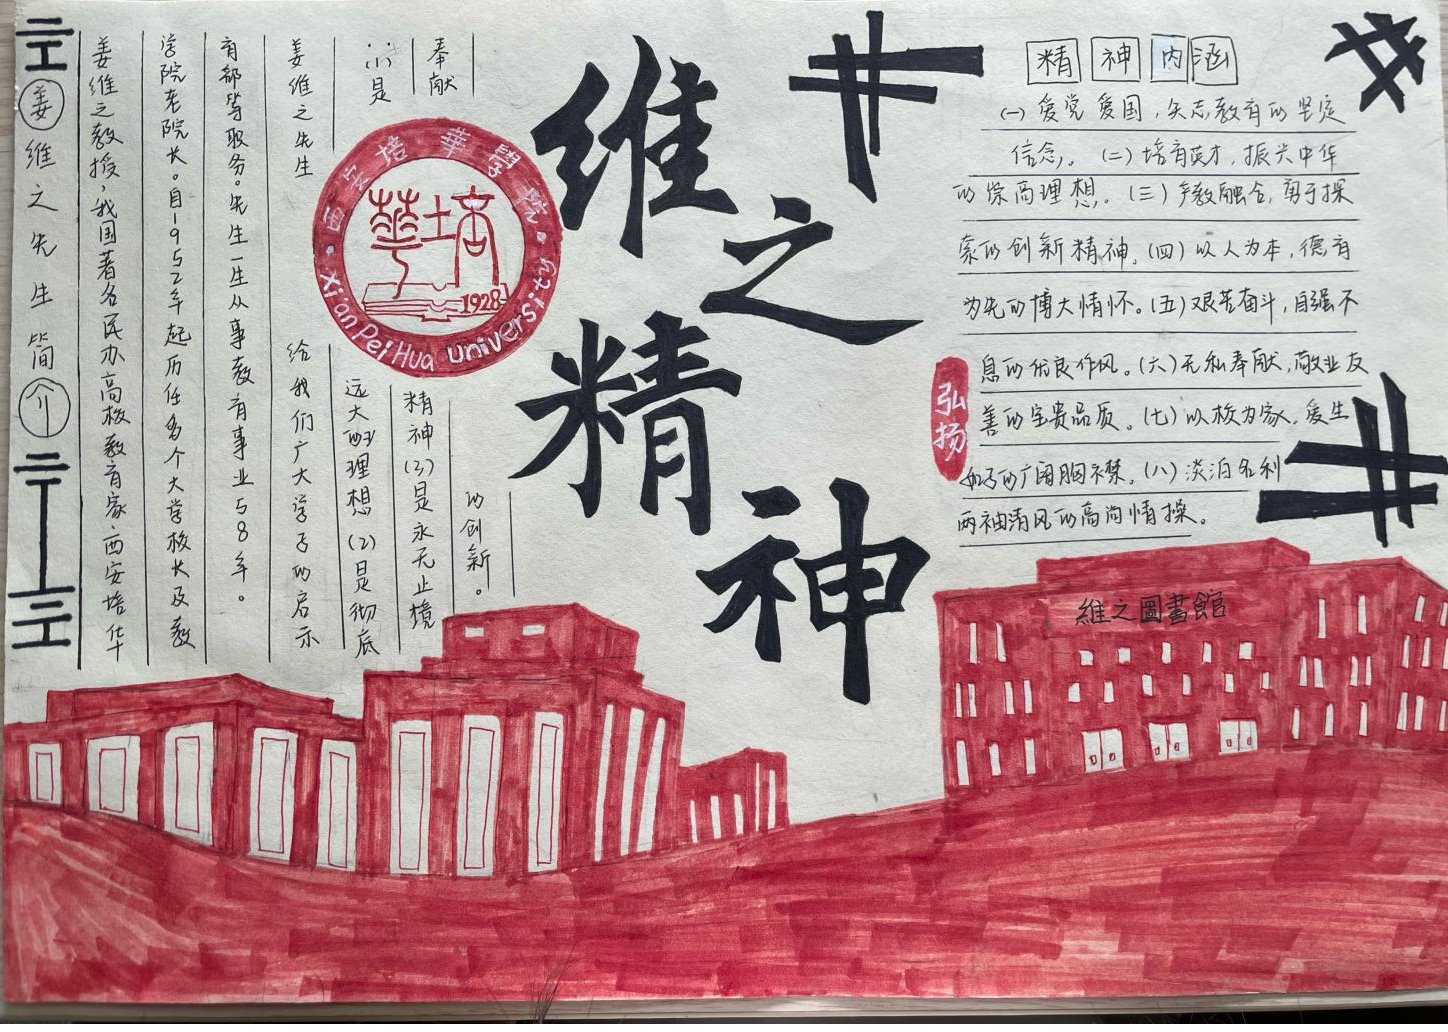 姜维之先生简介
姜维之教授,我国著名民办高校教育家西安培华
学院老院长。自1952年起历任多个大学校长及教
育部等职务。先生一生从事教育事业58年。
姜维之先生给我们广大学子的启示
(1)是远大的理想(2)是彻底
奉献精神(3)是永无止境
的创新。
西安培華學院
華培
1928
Xi'an Pei Hua University
维之
精神
精神内涵
(一)爱党爱国,矢志教育的坚定
信念。(二)培育英才,振兴中华
的崇高理想。(三)产教融合,勇于探
索的创新精神,(四)以人为本,德育
为先的博大情怀。(五)艰苦奋斗,自强不
息的优良作风。(六)无私奉献,敬业友
善的宝贵品质。(七)以校为家,爱生
如子的广阔胸襟,(八)淡泊名利
两袖清风的高尚情操。
弘扬
維之圖書館